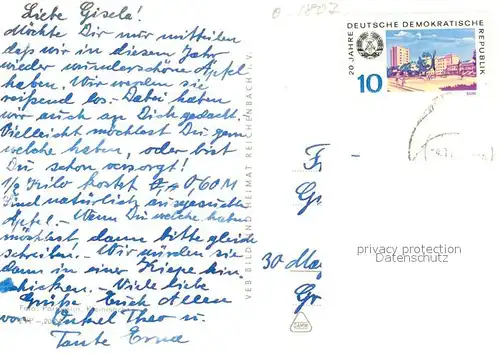 Liebe Gisela!
Möchte Dir nur mitteilen
daß wir in diesem Jahr
wieder wunderschöne Äpfel
haben. Wir werden sie
reißend los. Dabei haben
wir auch an Dich gedacht.
Vielleicht möchtest Du gern
welche haben, oder bist
Du schon versorgt!
1/2 Kilo kostet 0,60 M
Sind natürlich ausgesuchte
Äpfel. – Wenn Du welche haben
möchtest, dann bitte gleich
schreiben. – Wir würden sie
dann in einer Kiepe
schicken. Viele liebe
Grüße Euch Allen
von Onkel Theo u.
Tante Erna
VEB BILD UND HEIMAT REICHENBACH I. V.
20 JAHRE DEUTSCHE DEMOKRATISCHE
REPUBLIK
10
SUHL
Fr
30 Mag
privacy protection
Datenschutz